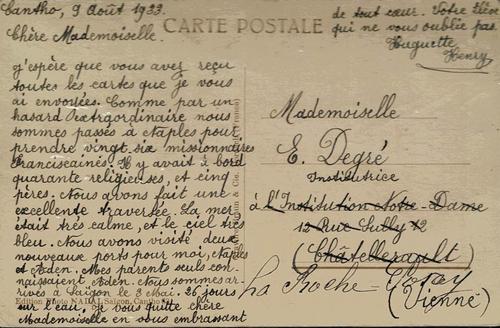 Cantho, 9 Août 1933.
CARTE POSTALE
Chère Mademoiselle.
j'espère que vous avez reçu
toutes les cartes que je vous
ai envoyées. Comme par un
hasard extraordinaire nous
sommes passés à Naples pour
prendre vingt-six missionnaires
Franciscaines. Il y avait à bord
quarante religieuses, et cinq
pères. Nous avons fait une
excellente traversée. La mer
était très calme, et le ciel très
bleu. Nous avons visité deux
nouveaux ports pour moi, Naples
et Aden. Mes parents seuls con-
naissaient Aden. Nous sommes ar-
rivés à Saïgon le 3 Mai. 26 jours
sur l'eau, Je vous quitte chère
Mademoiselle en vous embrassant
de tout cœur. Votre élève
qui ne vous oublie pas.
Huguette
Henry
Edition Photo NADAL Saïgon, Cantho
Mademoiselle
E. Degré
Institutrice
à l'Institution Notre-Dame
12 Rue Sully 12
(Châtellerault)
La Roche-Posay
(Vienne)